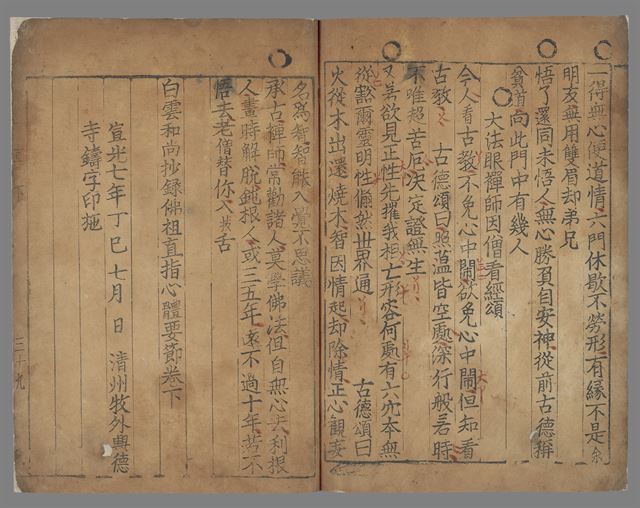 得無心便道情六門休歇不勞形有縁不是余
朋友無用雙眉却弟兄
悟了還同未悟人無心勝負自安神從前古德稱
貧道向此門中有幾人
大法眼禪師因僧看經頌
今人看古教不免心中閙欲免心中閙但知看
古教 古德頌曰照藴皆空處深行般若時
不唯超苦厄决定證無生
又 若欲見正性先摧我相亡形容何處有六宂本無
從豁爾靈明性翛然世界通 古德頌曰
火從木出還燒木智因情起却除情正心觀妄
名爲智智能入覺不思議
承古禪師常勸諸人莫學佛法但自無心去利根
人晝時解脫鈍根人或三五年遠不過十年若不
悟去老僧替你入拔舌
白雲和尚抄録佛祖直指心體要節卷下
宣光七年丁巳七月 日 清州牧外興德
寺鑄字印施
下
三十九